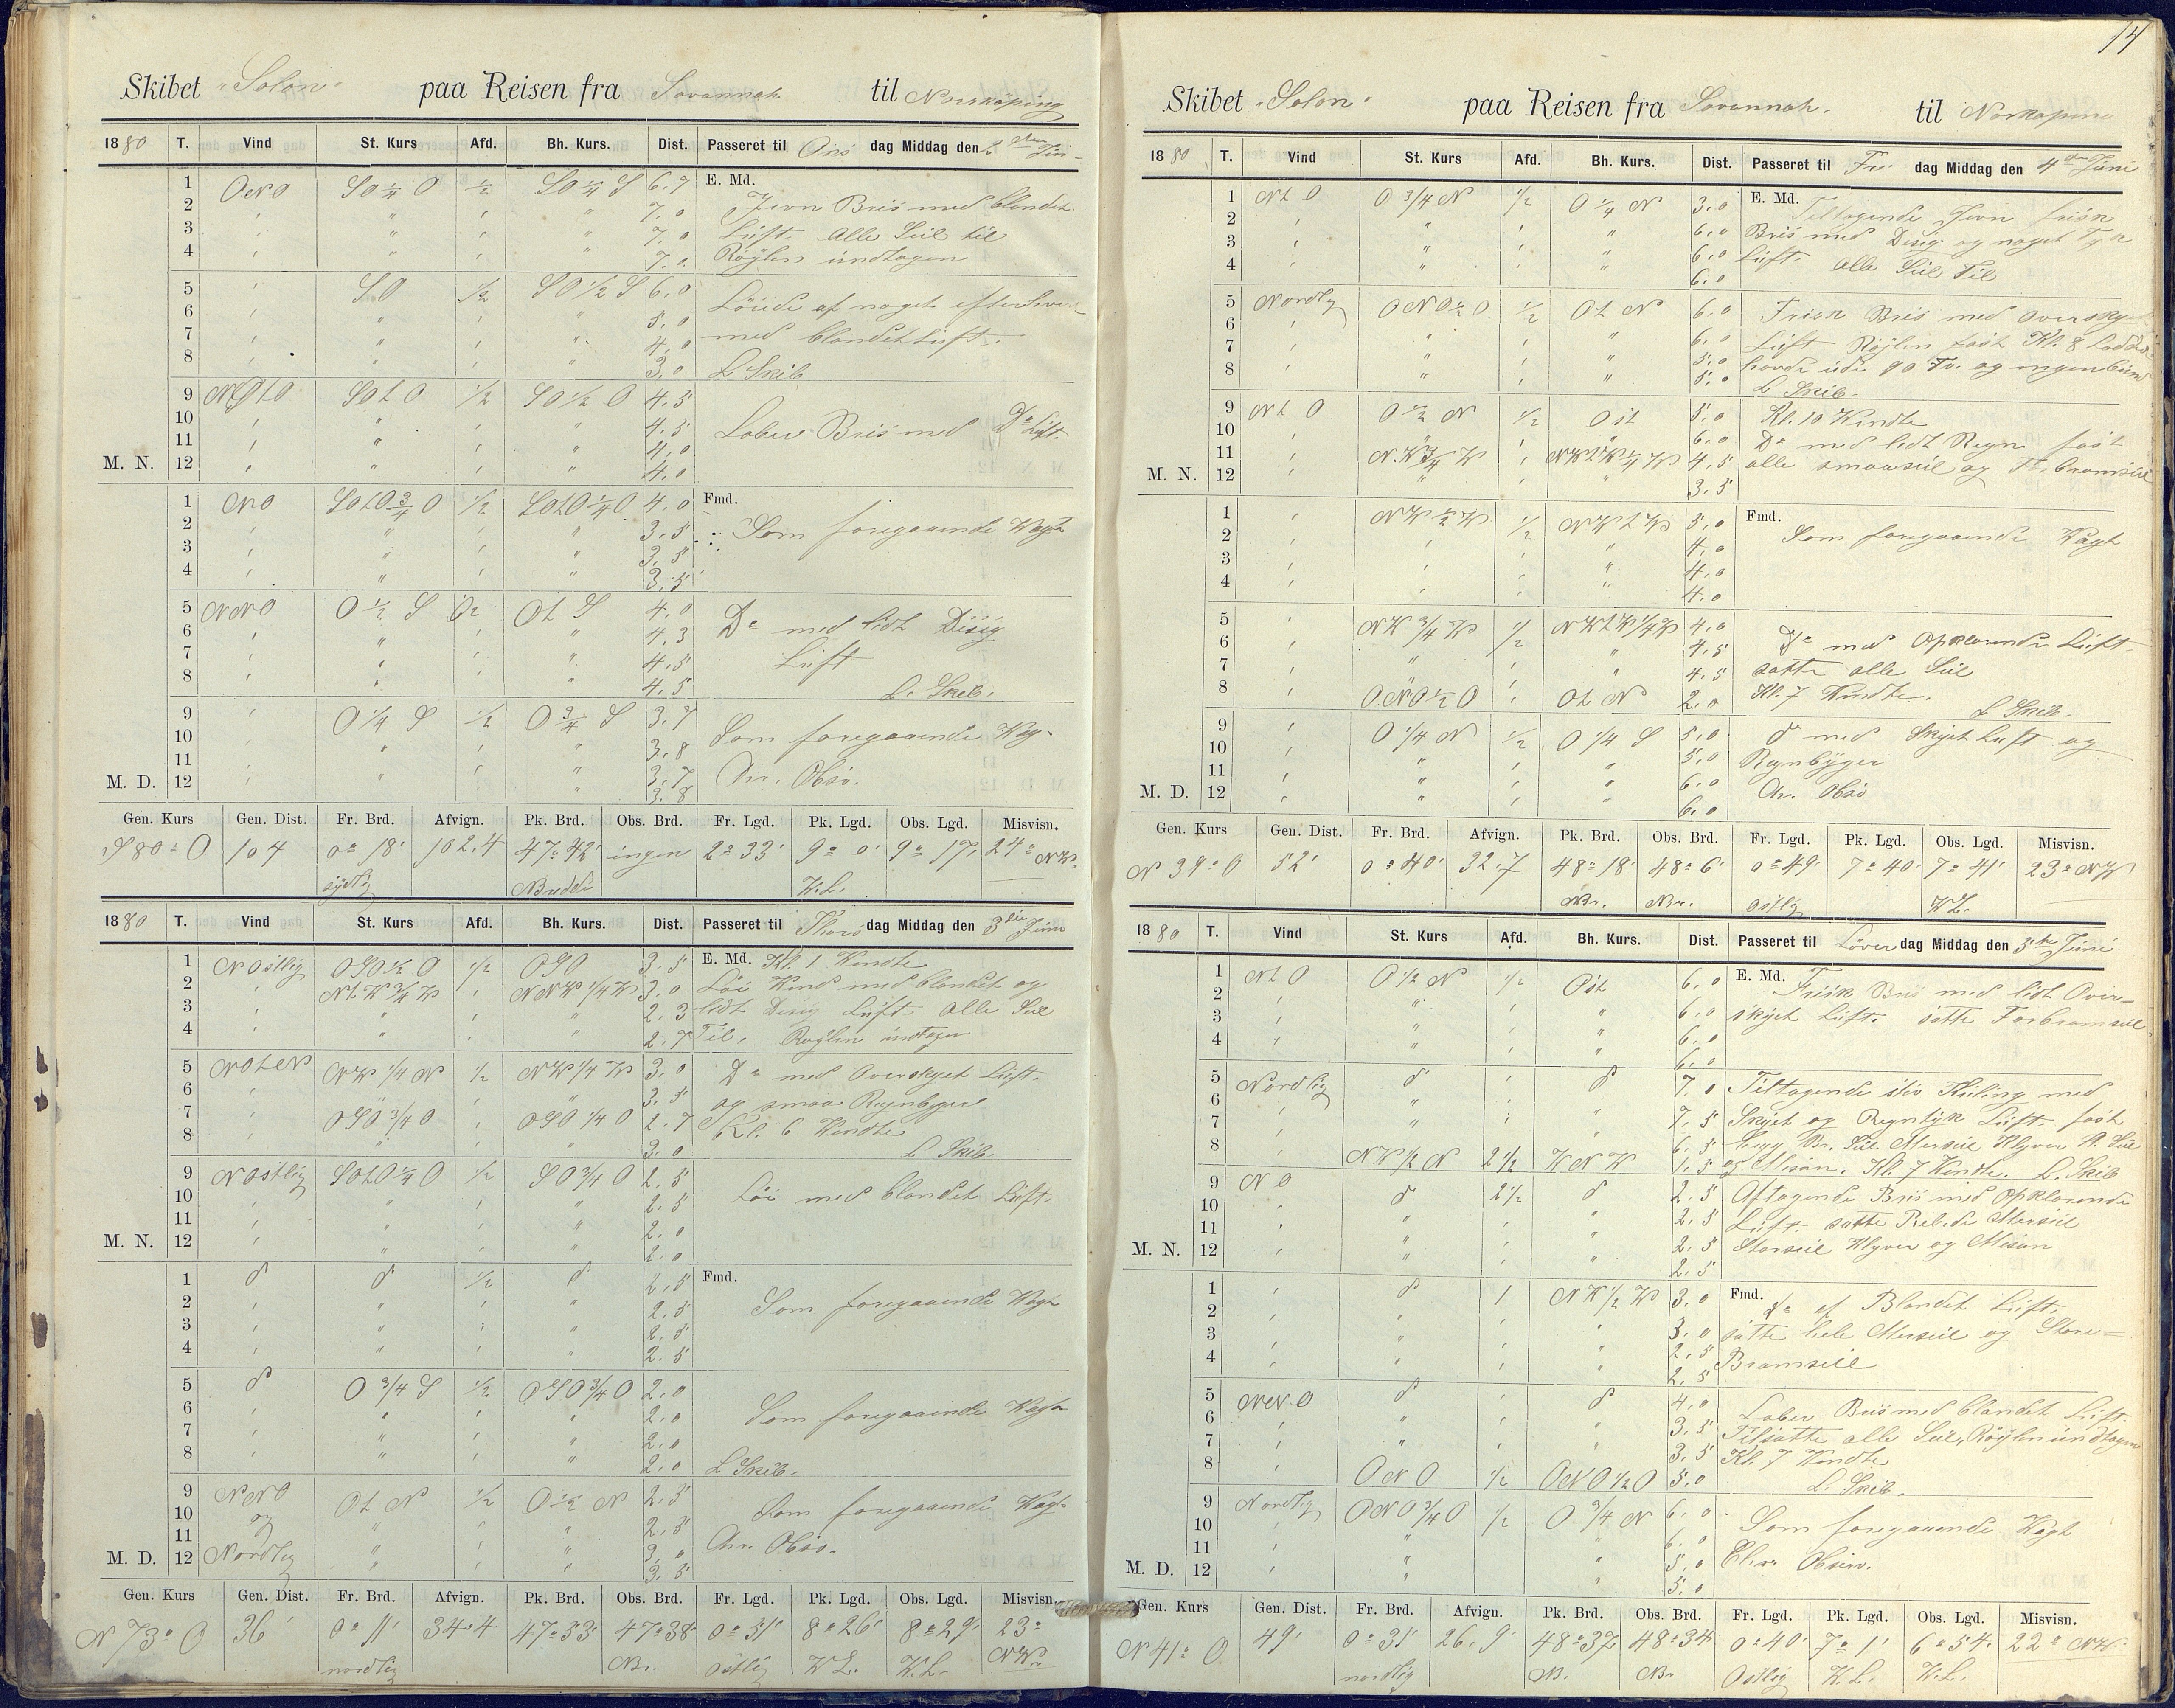 Skibet "Solon" paa Reisen fra Savannah til Norrköping
1880 T. Vind St. Kurs Afd. Bh. Kurs. Dist. Passeret til Ons dag Middag den 2den Juni
1 ONO SO 1/4 O 1/2 SO 1/4 S 6,7 E. Md.
2 " " " " 7,0 Jevn Bris med blandet
3 " " " " 7,0 Luft. Alle Seil til
4 " " " " 7,0 Röylen undtagen
5 " SO 1/2 SO 1/2 S 6,0
6 " " " " 5,0
7 " " " " 4,0 med blandet Luft.
8 " " " " 3,0 L Skib
9 NOtO SOtO 1/2 SO 1/2 O 4,5
10 " " " " 4,5 Laber Bris med Do Luft.
11 " " " " 4,0
M. N. 12 " " " " 4,0
1 NO SOtO 3/4 O 1/2 SOtO 1/4 O 4,0 Fmd.
2 " " " " 3,5 Som foregaaende Vagt
3 " " " " 3,5
4 " " " " 3,5
5 NNO O 1/2 S 1/2 Ot S 4,0
6 " " " " 4,3 Do med lidt Disig
7 " " " " 4,5 Luft
8 " " " " 4,5 L. Skib.
9 " O 1/4 S 1/2 O 3/4 S 3,7
10 " " " " 3,8 Som foregaaende Vag-
11 " " " " 3,7 Chr. Obsv.
M. D. 12 " " " " 3,8
Gen. Kurs Gen. Dist. Fr. Brd. Afvign. Pk. Brd. Obs. Brd. Fr. Lgd. Pk. Lgd. Obs. Lgd. Misvisn.
S 80° O 104 0° 18' 102,4 47° 42' ingen 2° 33' 9° 0' 9° 17' 24° NW.
sydlig Bredde W.L.
1880 T. Vind St. Kurs Afd. Bh. Kurs. Dist. Passeret til Thors dag Middag den 3die Juni
1 NOstlig OSO 1/2 O 1/2 OSO 3,5 E. Md. Kl. 1 Vendte
2 " NtW 3/4 W " NNW 1/4 W 3,0 Löi Vind med blandet og
3 " " " " 2,3 lidt Disig Luft. Alle Seil
4 " " " " 2,7 Til, Röylen undtagen
5 NOtN NW 1/4 N 1/2 NW 1/4 W 3,0 Do med Overskyet Luft.
6 " " " " 3,5 og smaa Regnbyger
7 " OSO 3/4 O " OSO 1/4 O 2,7 Kl. 6 Vendte
8 " " " " 3,0 L Skib.
9 NOstlig SOtO 1/4 O 1/2 SO 3/4 O 2,5
10 " " " " 2,5 Löi med blandet Luft
11 " " " " 2,0
M. N. 12 " " " " 2,0
1 do do 1/2 do 2,5 Fmd.
2 " " " " 2,5 Som foregaaende Vagt
3 " " " " 2,5
4 " " " " 2,5
5 do O 3/4 S 1/2 OSO 3/4 O 2,0
6 " " " " 2,0 Som foregaaende Vagt
7 " " " " 2,0
8 " " " " 2,0 L Skib.
9 NNO Ot N 1/2 O 1/2 N 2,5
10 og " " " 2,5 Som foregaaende Vagt
11 " " " 3,0 Chr. Obsv.
M. D. 12 Nordlig " " " 3,5
Gen. Kurs Gen. Dist. Fr. Brd. Afvign. Pk. Brd. Obs. Brd. Fr. Lgd. Pk. Lgd. Obs. Lgd. Misvisn.
N 73° O 36' 0° 11' 34,4 47° 53' 47° 38' 0° 51' 8° 26' 8° 29' 23°
nordlig Br. Ostlig W L. W.L. NW.
14
Skibet "Solon" paa Reisen fra Savannah. til Norköping
1880 T. Vind St. Kurs Afd. Bh. Kurs. Dist. Passeret til Fre dag Middag den 4de Juni
1 Nt O O 3/4 N 1/2 O 1/4 N 3,0 E. Md.
2 " " " " 6,0 Tiltagende Jevn frisk
3 " " " " 6,0 Bris med Disig og noget Tyk
4 " " " " 6,0 Luft. Alle Seil Til
5 Nordlig ONO 1/2 O 1/2 Ot N 6,0 Frisk Bris med Overskyet
6 " " " " 6,0 Luft Röylen fast Kl. 8
7 " " " " 5,0 havde ude 90 Fv. og ingen bund
8 " " " " 5,0 L Skib.
9 Nt O O 1/2 N 1/2 Ost 5,0 Kl. 10 Vendte
10 " " " " 6,0 Do med lidt Regn fast
11 " NW 3/4 W " NWtW 1/4 W 4,5 alle smaaseil og For bramseil
M. N. 12 " " " " 3,5
1 " NW 1/2 W 1/2 NW t W 5,0 Fmd.
2 " " " " 4,0 Som foregaaende Vagt
3 " " " " 4,0
4 " " " " 4,0
5 " NW 3/4 W 1/2 NWtW 1/4 W 4,0
6 " " " " 4,5 Do med Opklarende Luft
7 " " " " 4,5 satte alle Seil
8 " ONO 1/2 O " Ot N 2,0 Kl. 7 Vendte. L Skib.
9 " O 1/4 N 1/2 O 1/4 S 5,0 do med Skyet Luft og
10 " " " " 5,0 Regnbyger
11 " " " " 6,0 Chr. Obsv
M. D. 12 " " " " 6,0
Gen. Kurs Gen. Dist. Fr. Brd. Afvign. Pk. Brd. Obs. Brd. Fr. Lgd. Pk. Lgd. Obs. Lgd. Misvisn.
N 39° O 52' 0° 40' 32,7 48° 18' 48° 6' 0° 49' 7° 40' 7° 41' 23° NW
Br. Br. Ostlig W L.
1880 T. Vind St. Kurs Afd. Bh. Kurs. Dist. Passeret til Löver dag Middag den 5te Juni
1 Nt O O 1/2 N 1/2 Ost 6,0 E. Md.
2 " " " " 6,0 Frisk Bris med lidt Over-
3 " " " " 6,0 skyet Luft. satte Forbramseil
4 " " " " 6,0
5 Nordlig do " do 7,0 Tiltagende stiv Kuling med
6 " " " " 7,5 Skyet og Regntyk Luft. fast
7 " " " " 6,5 Br. Seil Merseil Klyver St. Seil
8 " NW 1/2 N 2 1/2 WNW 1,5 og Mesan. Kl. 7 Vendte. L. Skib
9 NO do 2 1/2 do 2,5 Aftagende Bris med Opklarende
10 " " " " 2,5 Luft. satte Mersseil
11 " " " " 2,5 Storseil Klyver og Mesan
M. N. 12 " " " " 2,5
1 " do 1 NW 1/2 W 3,0 Fmd.
2 " " " " 3,0 Do af Blandet Luft.
3 " " " " 2,5 satte hele Merseil og Store=
4 " " " " 2,5 Bramseil
5 NNO do " do 4,0
6 " " " " 3,5 Laber Bris med blandet Luft.
7 " " " " 3,5 Tilsatte alle Seil, Röylen undtagen
8 " ONO 1/2 ONO 1/2 O 5,0 Kl. 7 Vendte L. Skib.
9 Nordlig ONO 3/4 O 1/2 O 3/4 N 6,0
10 " " " " 6,0 Som foregaaende Vagt
11 " " " " 5,0 Chr. Obsin.
M. D. 12 " " " " 5,0
Gen. Kurs Gen. Dist. Fr. Brd. Afvign. Pk. Brd. Obs. Brd. Fr. Lgd. Pk. Lgd. Obs. Lgd. Misvisn.
N 41° O 49' 0° 31' 26,9' 48° 37' 48° 34' 0° 40' 7° 1' 6° 54' 22° NW
nordlig B. Br Ostlig W.L. W.L.